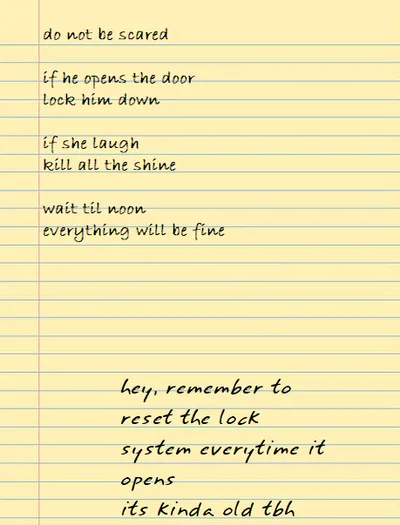 do not be scared
if he opens the door
lock him down
if she laugh
kill all the shine
wait til noon
everything will be fine
hey, remember to
reset the lock
system everytime it
opens
its kinda old tbh